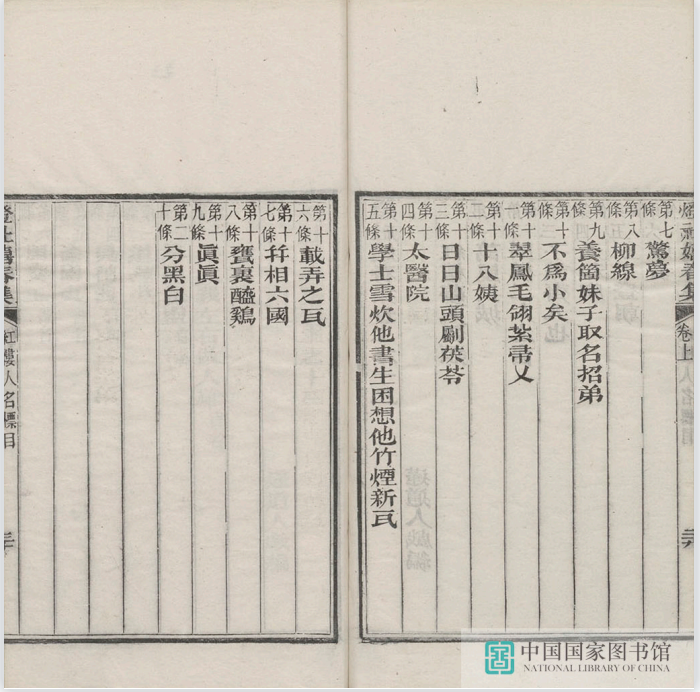 燈社嬉春集 卷上
第七條 驚夢
第八條 柳線
第九條 養箇妹子取名招弟
第十條 不爲小矣
第十一條 翠鳳毛翎紮帚乂
第十二條 十八姨
第十三條 日日山頭劚茯苓
第十四條 太醫院
第十五條 學士雪炊他書生困想他竹煙新瓦
第十六條 載弄之瓦
第十七條 并相六國
第十八條 甕裏醯鷄
第十九條 眞眞
第二十條 分黑白
燈社嬉春集 紅樓人名標目
三
中国国家图书馆
NATIONAL LIBRARY OF CHINA